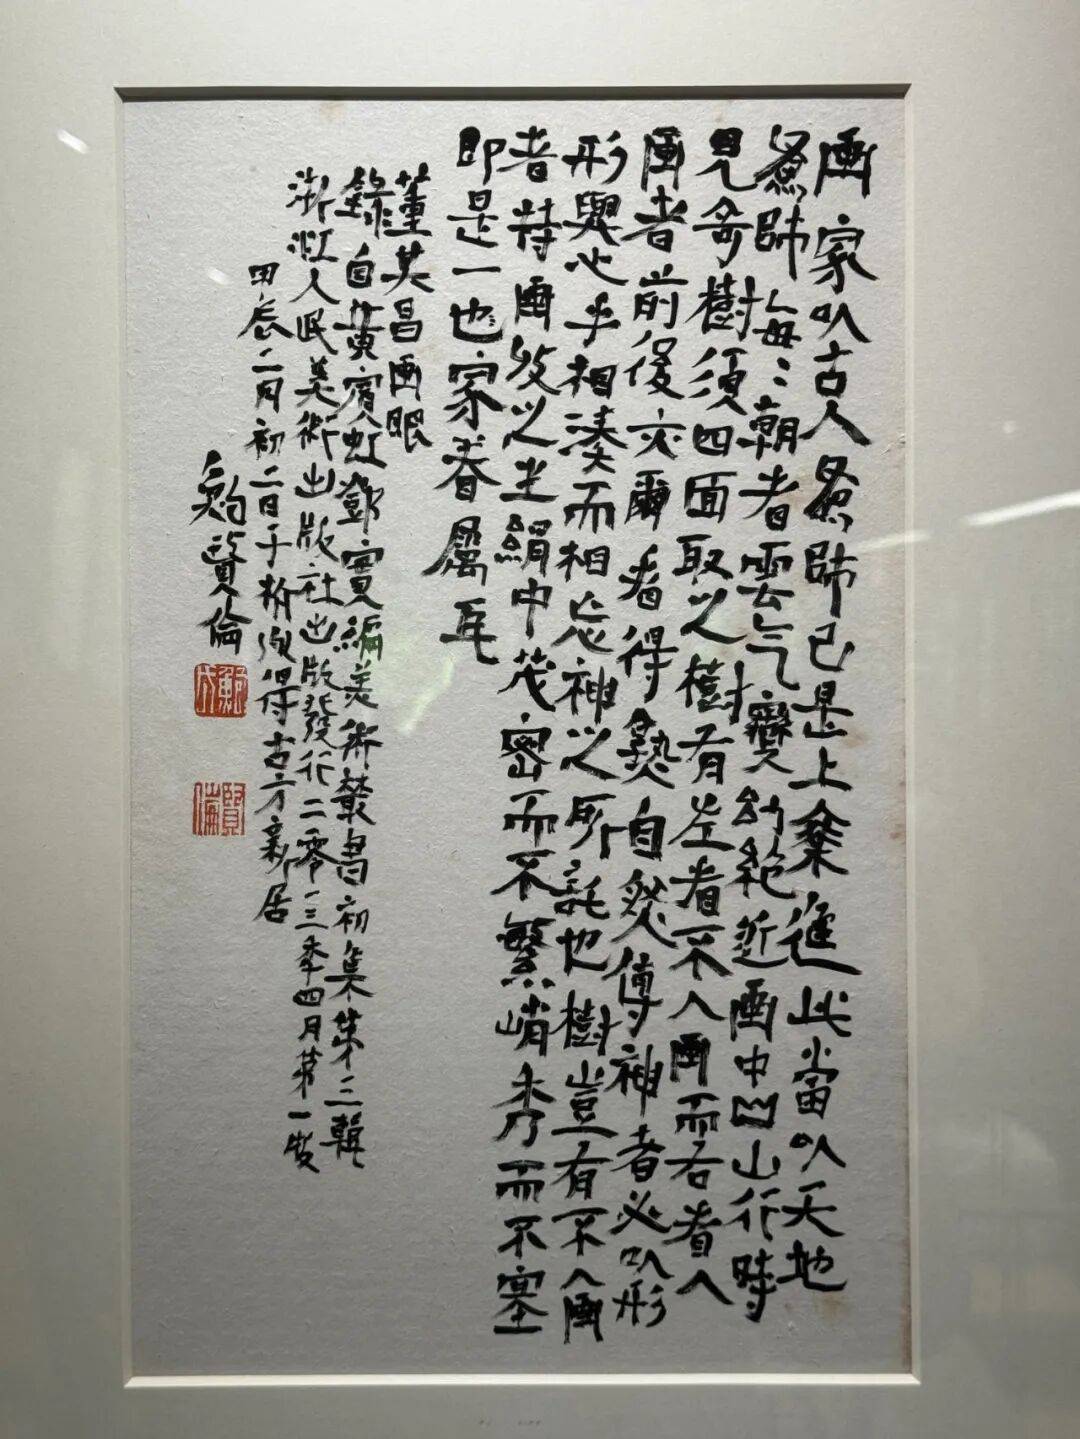 画家以古人為師已是上乘進此當以天地
為師每〻朝看雲气變幻絕近画中山山行時
見奇樹須四面取之樹有左看不入画而右看入
画者前後亦爾看得熟自然傳神者必以形
形與心手相湊而相忘神之所託也樹豈有不入画
者特画收之生絹中茂密而不繁峭秀而不塞
即是一也家眷屬耳
董其昌画眼
錄自黃賓虹鄧實編美術叢書初集第三輯
浙江人民美術出版社出版發行二零一三年四月第一版
甲辰二月初二日于得古方新居
鮑賢倫
鮑
賢倫